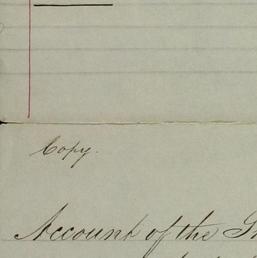 Copy.
Account of the